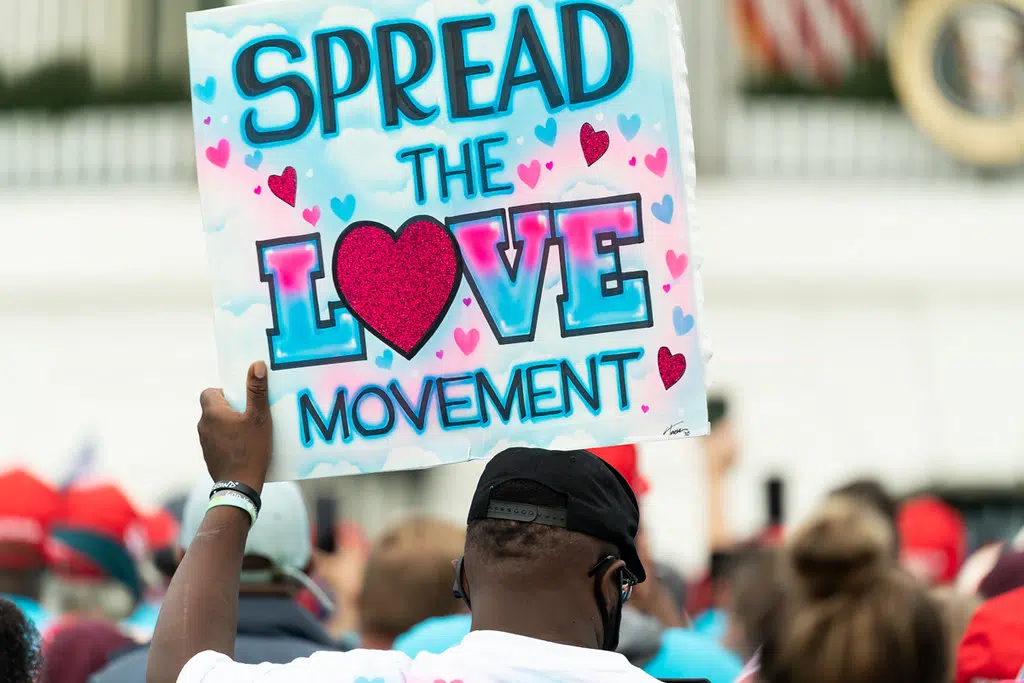 SPREAD
THE
LOVE
MOVEMENT